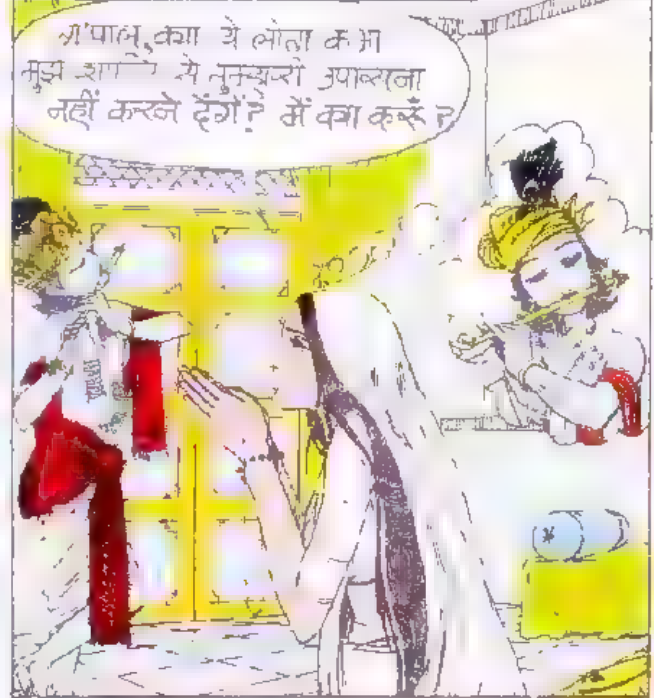 गोपाल, क्या ये लोग कभी
मुझे शान्ति से तुम्हारी उपासना
नहीं करने देंगे? में क्या करूँ?